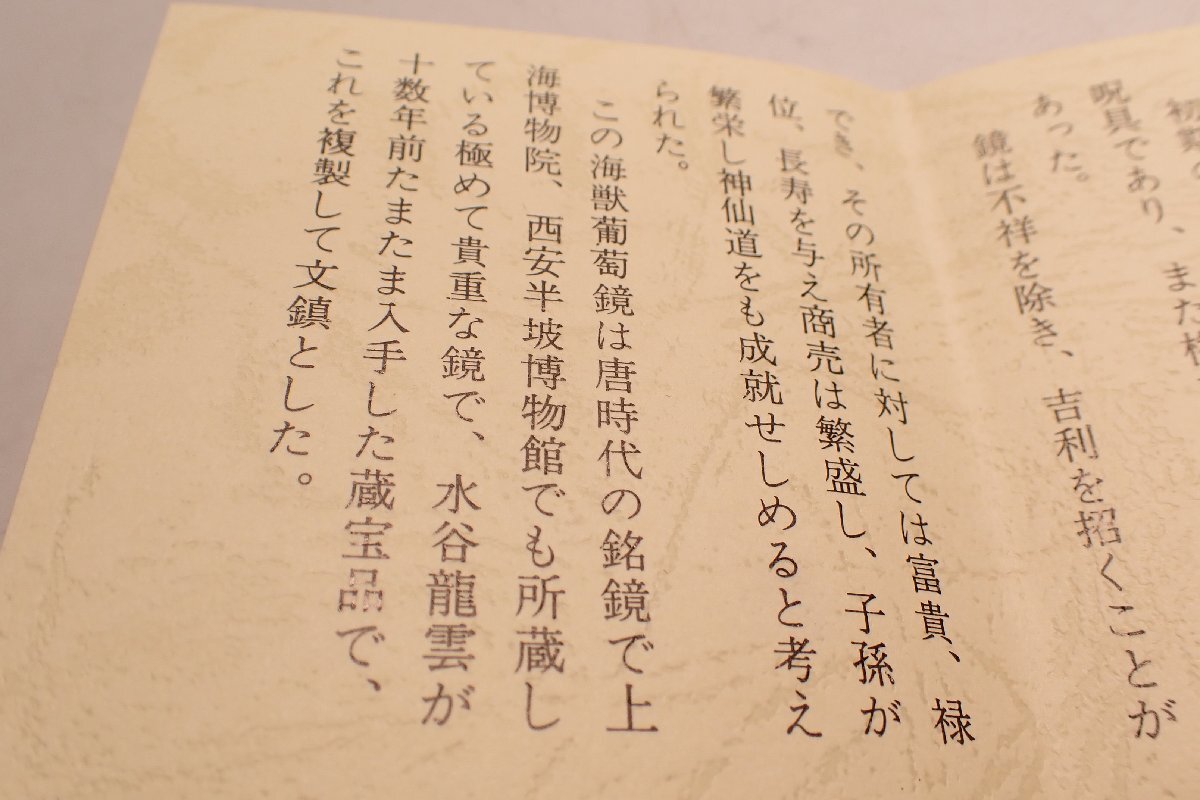 呪具であり、また
あった。
鏡は不祥を除き、吉利を招くことが
でき、その所有者に対しては富貴、禄
位、長寿を与え商売は繁盛し、子孫が
繁栄し神仙道をも成就せしめると考え
られた。
この海獣葡萄鏡は唐時代の銘鏡で上
海博物院、西安半坡博物館でも所蔵し
ている極めて貴重な鏡で、水谷龍雲が
十数年前たまたま入手した蔵宝品で、
これを複製して文鎮とした。